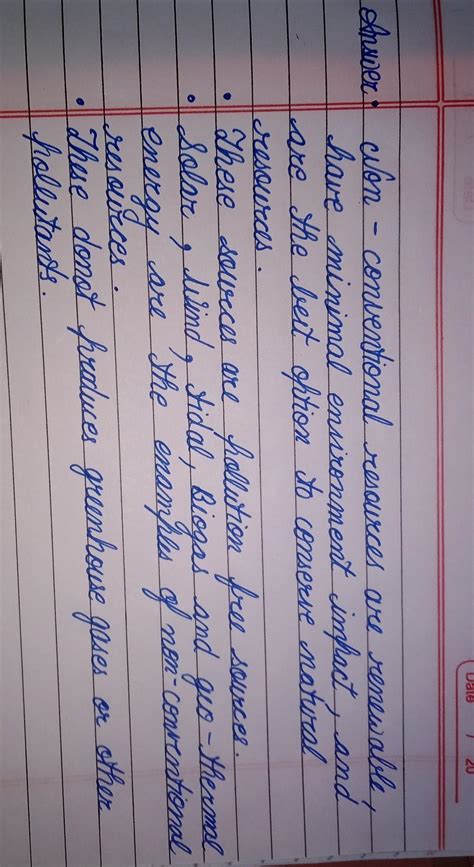 Date / 20
Answer • Non-conventional resources are renewable,
have minimal environment impact, and
are the best option to conserve natural
resources.
• These sources are pollution free sources.
• Solar, Wind, tidal, Biogas and geo-thermal
energy are the examples of non-conventional
resources.
• These donot produces greenhouse gases or other
pollutants.